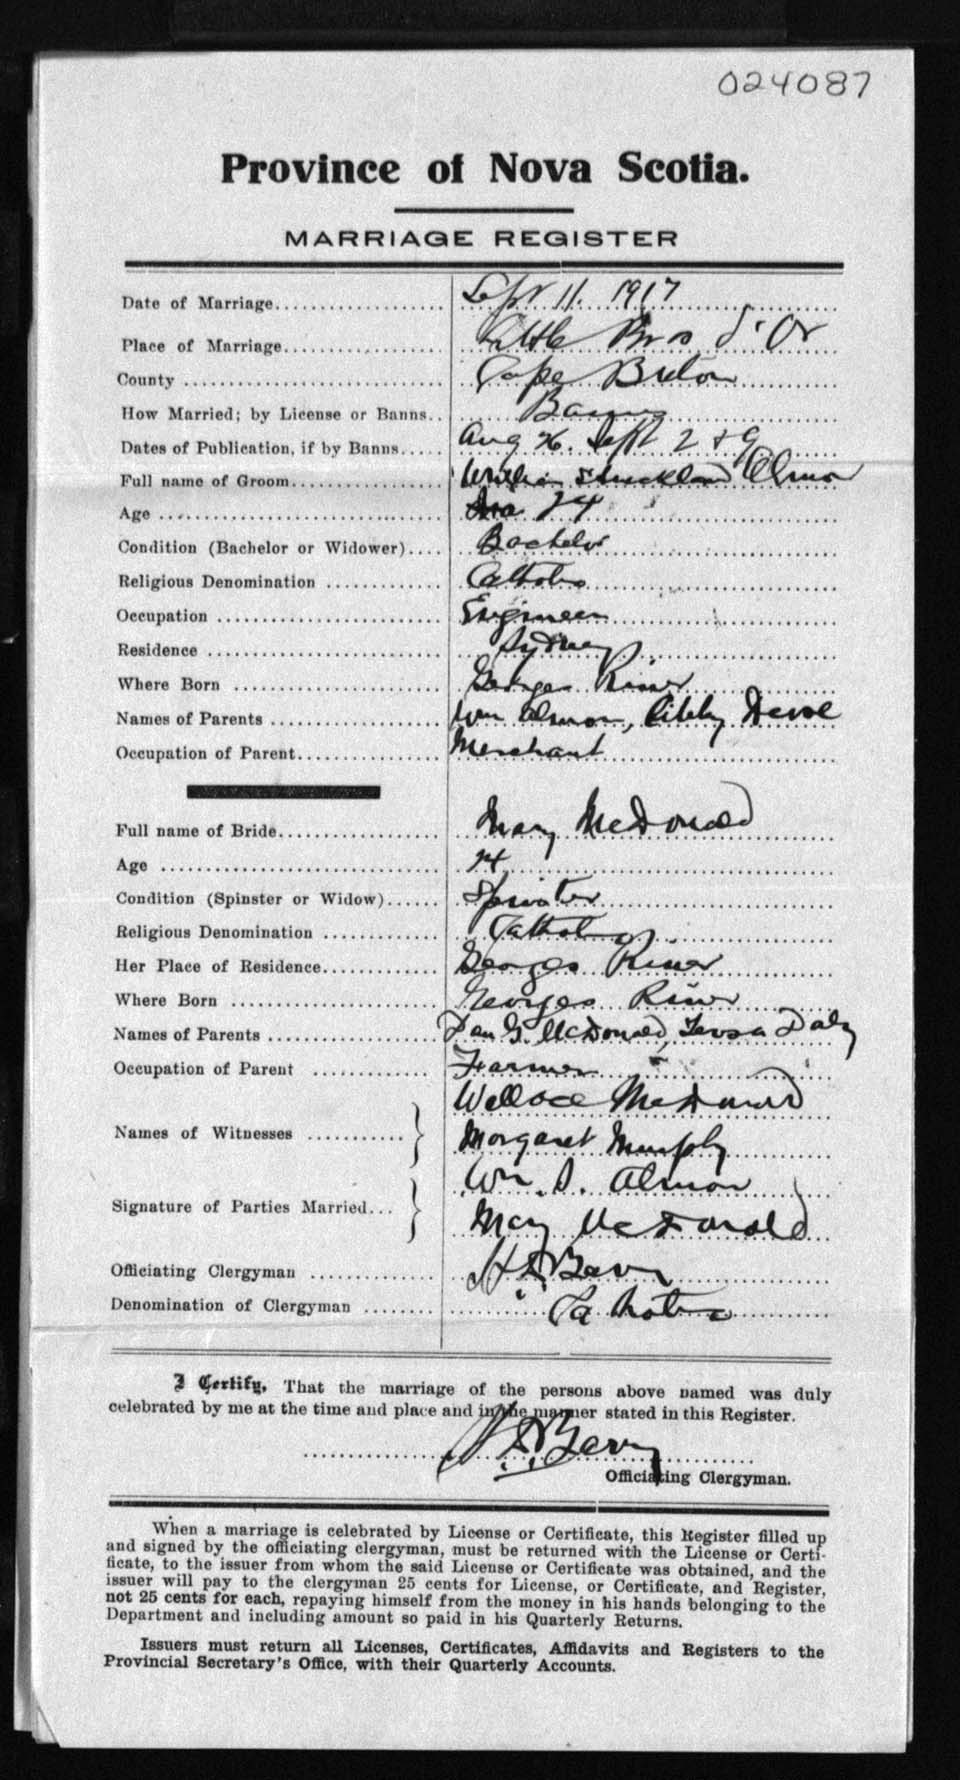 024087
Province of Nova Scotia.
MARRIAGE REGISTER
Date of Marriage.................... Sept 11. 1917
Place of Marriage................... Little Bras d'Or
County .............................. Cape Breton
How Married; by License or Banns.. Banns
Dates of Publication, if by Banns..... Aug 26. Sept 2 & 9
Full name of Groom.................. William Strickland Almon
Age ................................. 24
Condition (Bachelor or Widower).... Bachelor
Religious Denomination .............. Catholic
Occupation .......................... Engineer
Residence ........................... Sydney
Where Born ......................... Georges River
Names of Parents .................... Wm Almon, Libby
Occupation of Parent................. Merchant
Full name of Bride................... Mary McDonald
Age ................................. 24
Condition (Spinster or Widow)...... Spinster
Religious Denomination .............. Catholic
Her Place of Residence.............. Georges River
Where Born ......................... Georges River
Names of Parents .................... Dan G. McDonald, Teresa Daly
Occupation of Parent .............. Farmer
Wallace McDonald
Names of Witnesses ........... Margaret Murphy
Wm. S. Almon
Signature of Parties Married... Mary McDonald
Officiating Clergyman ...............
Denomination of Clergyman ........ Catholic
I Certify, That the marriage of the persons above named was duly
celebrated by me at the time and place and in the manner stated in this Register.
Officiating Clergyman.
When a marriage is celebrated by License or Certificate, this Register filled up
and signed by the officiating clergyman, must be returned with the License or Certi-
ficate, to the issuer from whom the said License or Certificate was obtained, and the
issuer will pay to the clergyman 25 cents for License, or Certificate, and Register,
not 25 cents for each, repaying himself from the money in his hands belonging to the
Department and including amount so paid in his Quarterly Returns.
Issuers must return all Licenses, Certificates, Affidavits and Registers to the
Provincial Secretary's Office, with their Quarterly Accounts.